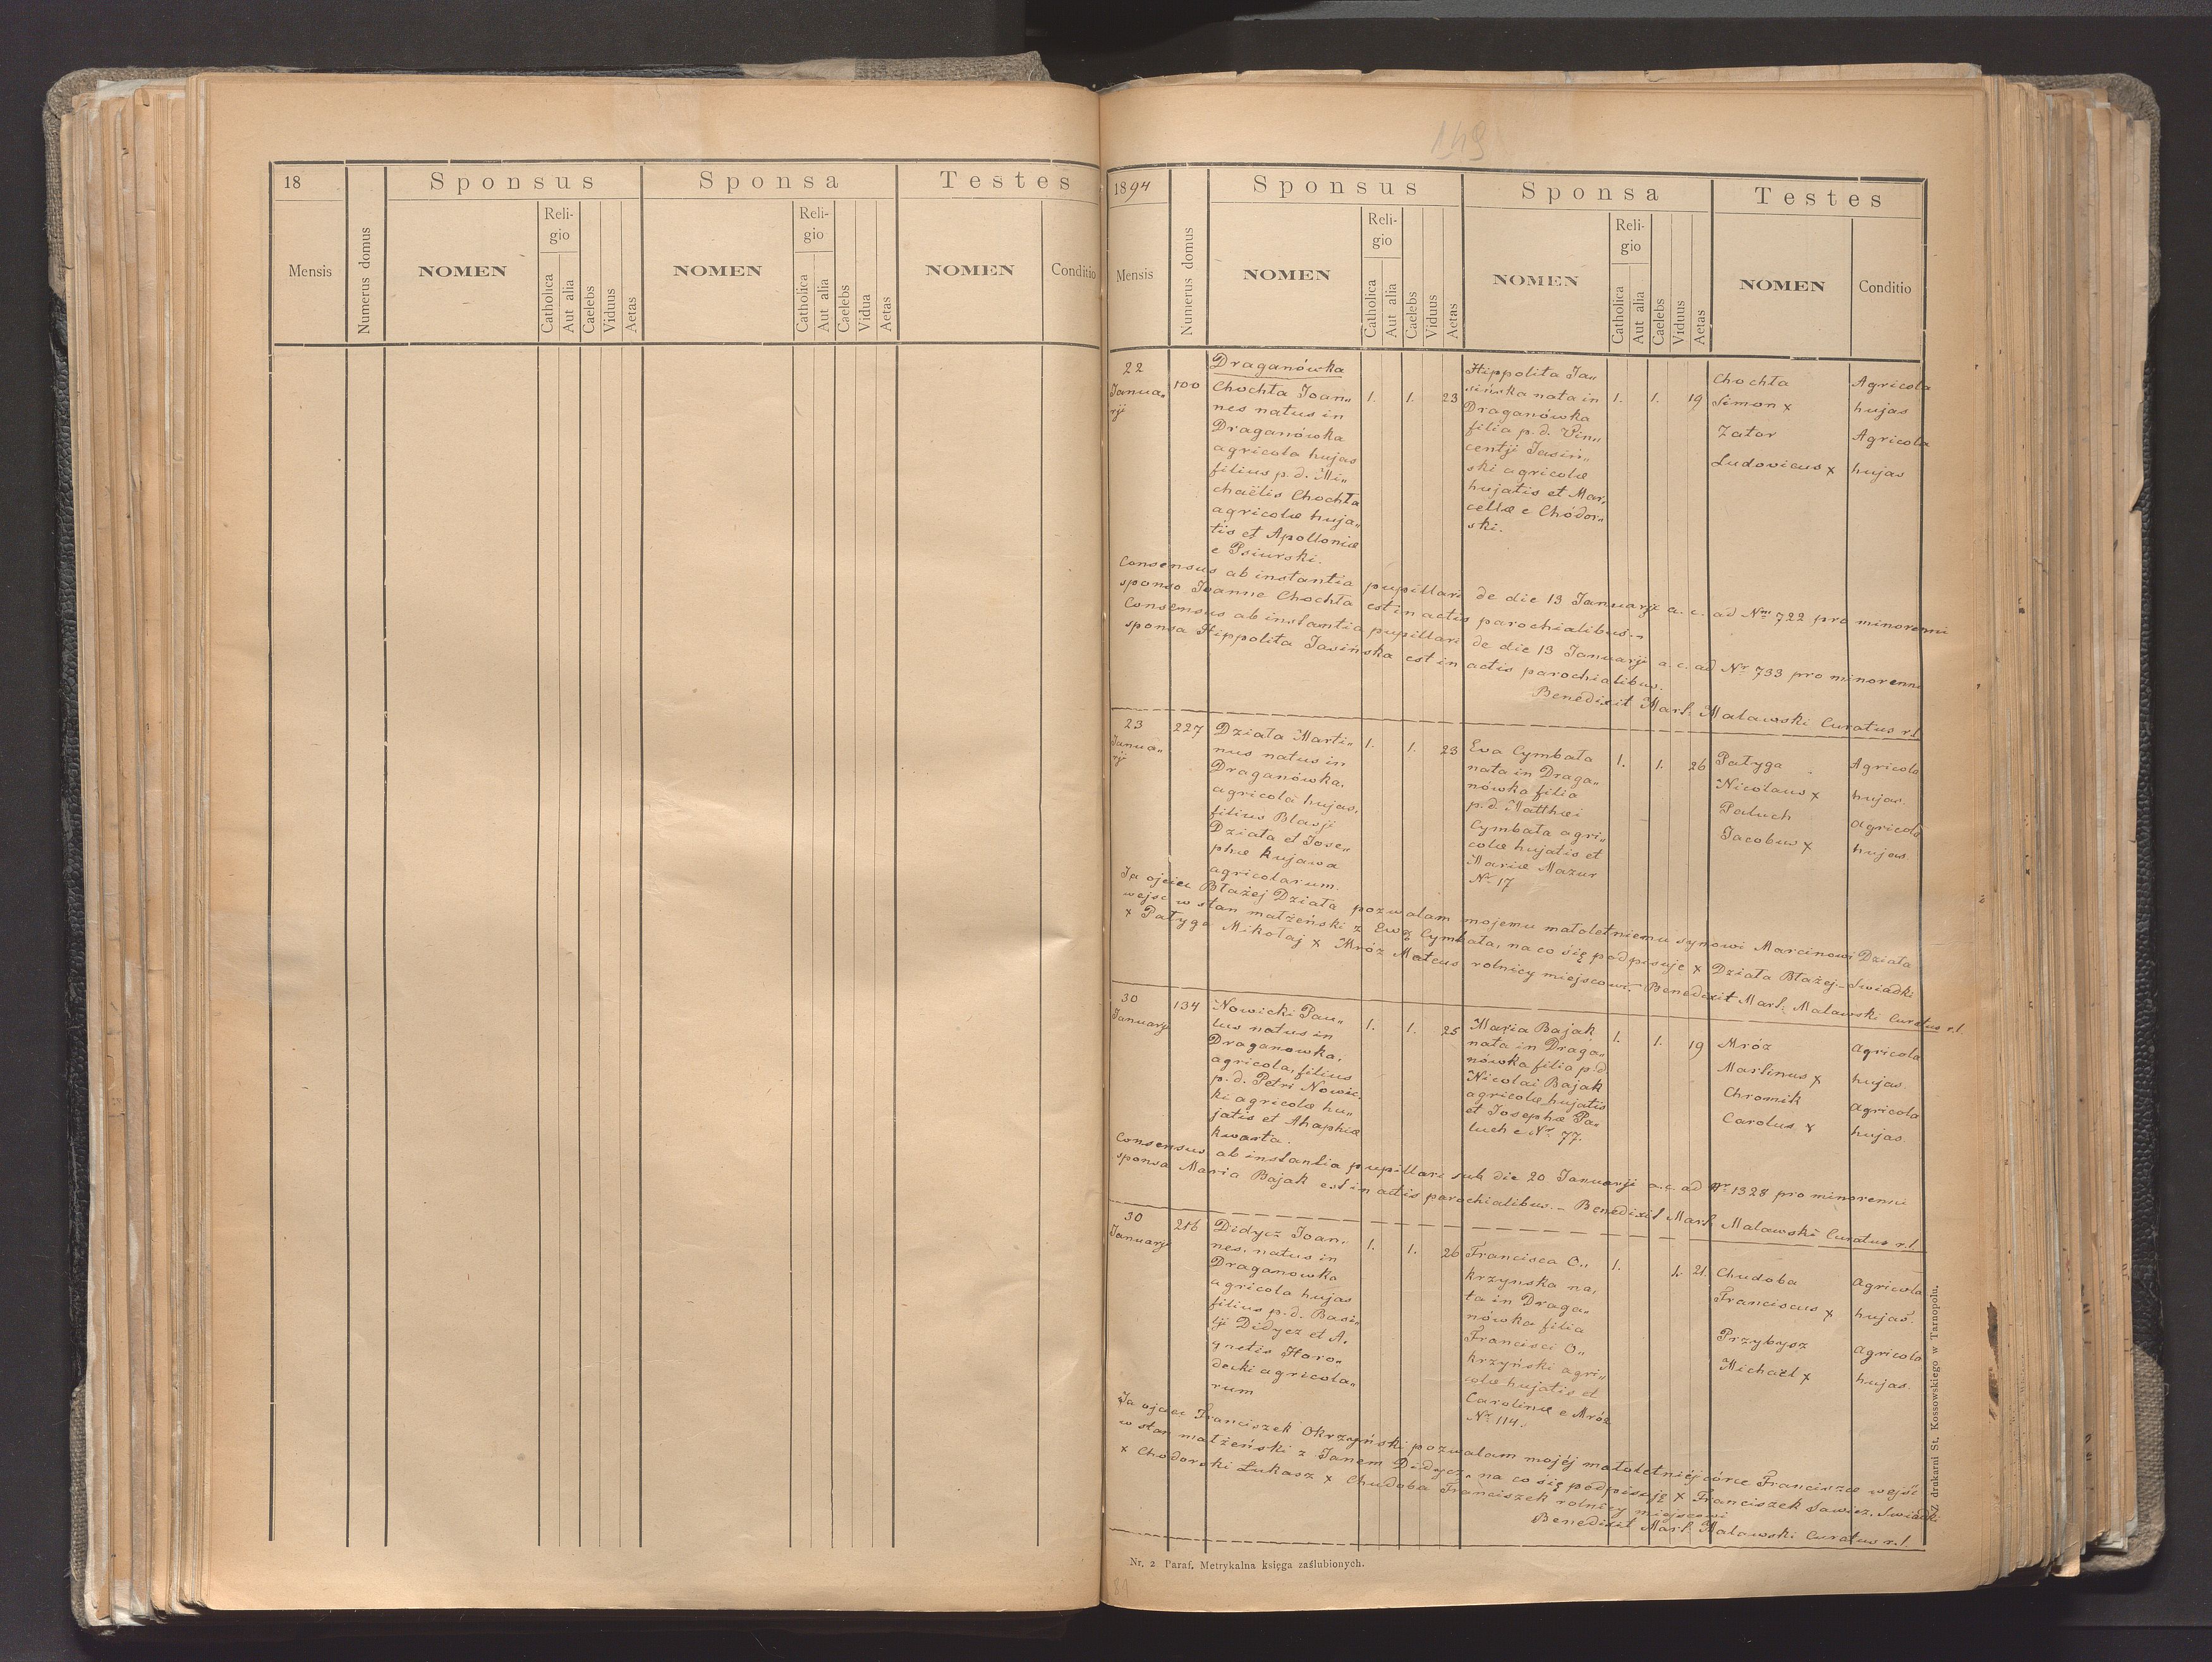 18
Sponsus
Sponsa
Testes
Mensis
Numerus domus
NOMEN
Religio
Catholica
Aut alia
Caelebs
Viduus
Aetas
NOMEN
Religio
Catholica
Aut alia
Caelebs
Vidua
Aetas
NOMEN
Conditio
149
1894
Sponsus
Sponsa
Testes
Mensis
Numerus domus
NOMEN
Reli-
gio
Catholica
Aut alia
Caelebs
Viduus
Aetas
NOMEN
Reli-
gio
Catholica
Aut alia
Caelebs
Viduus
Aetas
NOMEN
Conditio
22
Janua„
rji
100
Draganówka
Chochła Joan„
nes natus in
Draganówka
agricola hujas
filius p. d. Mi„
chaëlis Chochła
agricolæ huja„
tis et Apolloniæ
e Psiurski.
1. 1. 23
Hippolita Ja„
sińska nata in
Draganówka
filia p. d. Vin„
centji Jasiń„
ski agricolæ
hujatis et Mar„
cellæ e Chódor„
ski.
1. 1. 19
Chochła
Simon x
Zator
Ludovicus x
Agricola
hujas
Agricola
hujas
Consensus ab instantia pupillari de die 13 Januarji a. c. ad Nm 722 pro minorenni
sponso Joanne Chochła est in actis parochialibus.-
Consensus ab instantia pupillari de die 13 Januarji a. c. ad Nr 733 pro minorenni
sponsa Hippolita Jasińska est in actis parochialibus.
Benedixit Mart. Malawski Curatus r.l.
23
Janua„
rji
227
Działa Marti„
nus natus in
Draganówka,
agricola hujas,
filius Blasji
Działa et Jose„
phæ Kujawa
agricolarum.
1. 1. 23
Eva Cymbała
nata in Draga„
nówka filia
p. d. Matthæi
Cymbała agri„
colæ hujatis et
Mariæ Mazur
Nr 17
1. 1. 26
Pałyga
Nicolaus x
Paluch
Jacobus x
Agricola
hujas.
agricola
hujas
Ja ojciec Błażej Działa pozwalam mojemu małoletniemu synowi Marcinowi Działa
wejść w stan małżeński z Ewą Cymbała, na co się podpisuję x Działa Błażej - Swiadki
x Pałyga Mikołaj x Mróz Mateus rolnicy miejscowi. Benedixit Mart. Malawski Curatus r.l.
30
Januarji
134
Nowicki Pau„
lus natus in
Draganowka,
agricola, filius
p. d. Petri Nowic„
ki agricolæ hu„
jatis et Ahaphiæ
Kwarta.
1. 1. 25
Maria Bajak
nata in Draga„
nówka filia p. d.
Nicolai Bajak
agricolæ hujatis
et Josephæ Pa„
luch e Nr 77.
1. 1. 19
Mróz
Martinus x
Chromik
Carolus x
agricola
hujas.
agricola
hujas.
Consensus ab instantia pupillari sub die 20 Januarji a. c. ad Nr 1328 pro minorenni
sponsa Maria Bajak est in actis parochialibus.- Benedixit Mart. Malawski Curatus r.l.
30
Januarji
216
Didycz Joan„
nes, natus in
Draganowka
agricola hujas
filius p. d. Basi„
lji Didycz et A„
gnetis Horo„
decki agricola„
rum
1. 1. 26
Francisca O„
krzynska na„
ta in Draga„
nówka filia
Francisci O„
krzyński agri„
colæ hujatis et
Carolinæ e Mróz
Nr 114.
1. 1. 21.
Chudoba
Franciscus x
Przybysz
Michaël x
agricola
hujas.
agricola
hujas.
Ja ojciec Franciszek Okrzyński pozwalam mojéj małoletniéj córce Franciszce wejść
w stan małżeński z Janem Didycz„ na co się podpisuję x Franciszek Sawicz. Swiadki
x Chodorski Łukasz x Chudoba Franciszek rolnicy miejscowi
Benedixit Mart. Malawski Curatus r.l.
Nr. 2 Paraf. Metrykalna księga zaślubionych.
Z drukarni St. Kossowskiego w Tarnopolu.
81